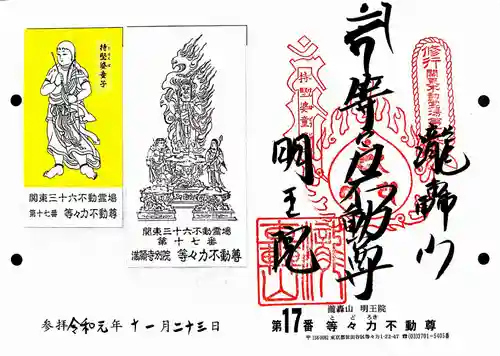 持堅婆童子
関東三十六不動霊場
第十七番 等々力不動尊
関東三十六不動霊場
第十七番
満願寺別院 等々力不動尊
修行
持堅婆童
等々力不動尊
瀧轟山
明王院
瀧轟山 明王院
とどろき
第17番 等々力不動尊
〒158-0082 東京都世田谷区等々力1-22-47 ☎(03)3701-5405番
参拝 令和元年 十一月二十三日